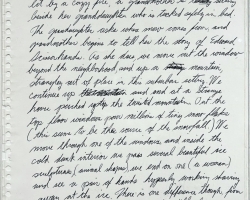 led by a cozy fire, a grandmother is sitting
beside her granddaughter who is tucked safely in bed.
The granddaughter asks who snow comes from, and
grandmother begins to tell her the story of Edward
Scissorhands. As she does, we move out the window
beyond the neighborhood and up a mountain
strangely out of place in the suburban setting. We
continue up and and at a strange
home perched atop the twisted mountain. Out the
top floor window pour million of tiny snow flakes
(this seem to be the source of the snowfall) We
move through one of the windows and inside the
cold dark interior we pass several beautiful ice
sculptures (animal shapes) we end on one (a woman)
and see a pair of hands busily working, shaving
away at the ice. There is one difference though, from